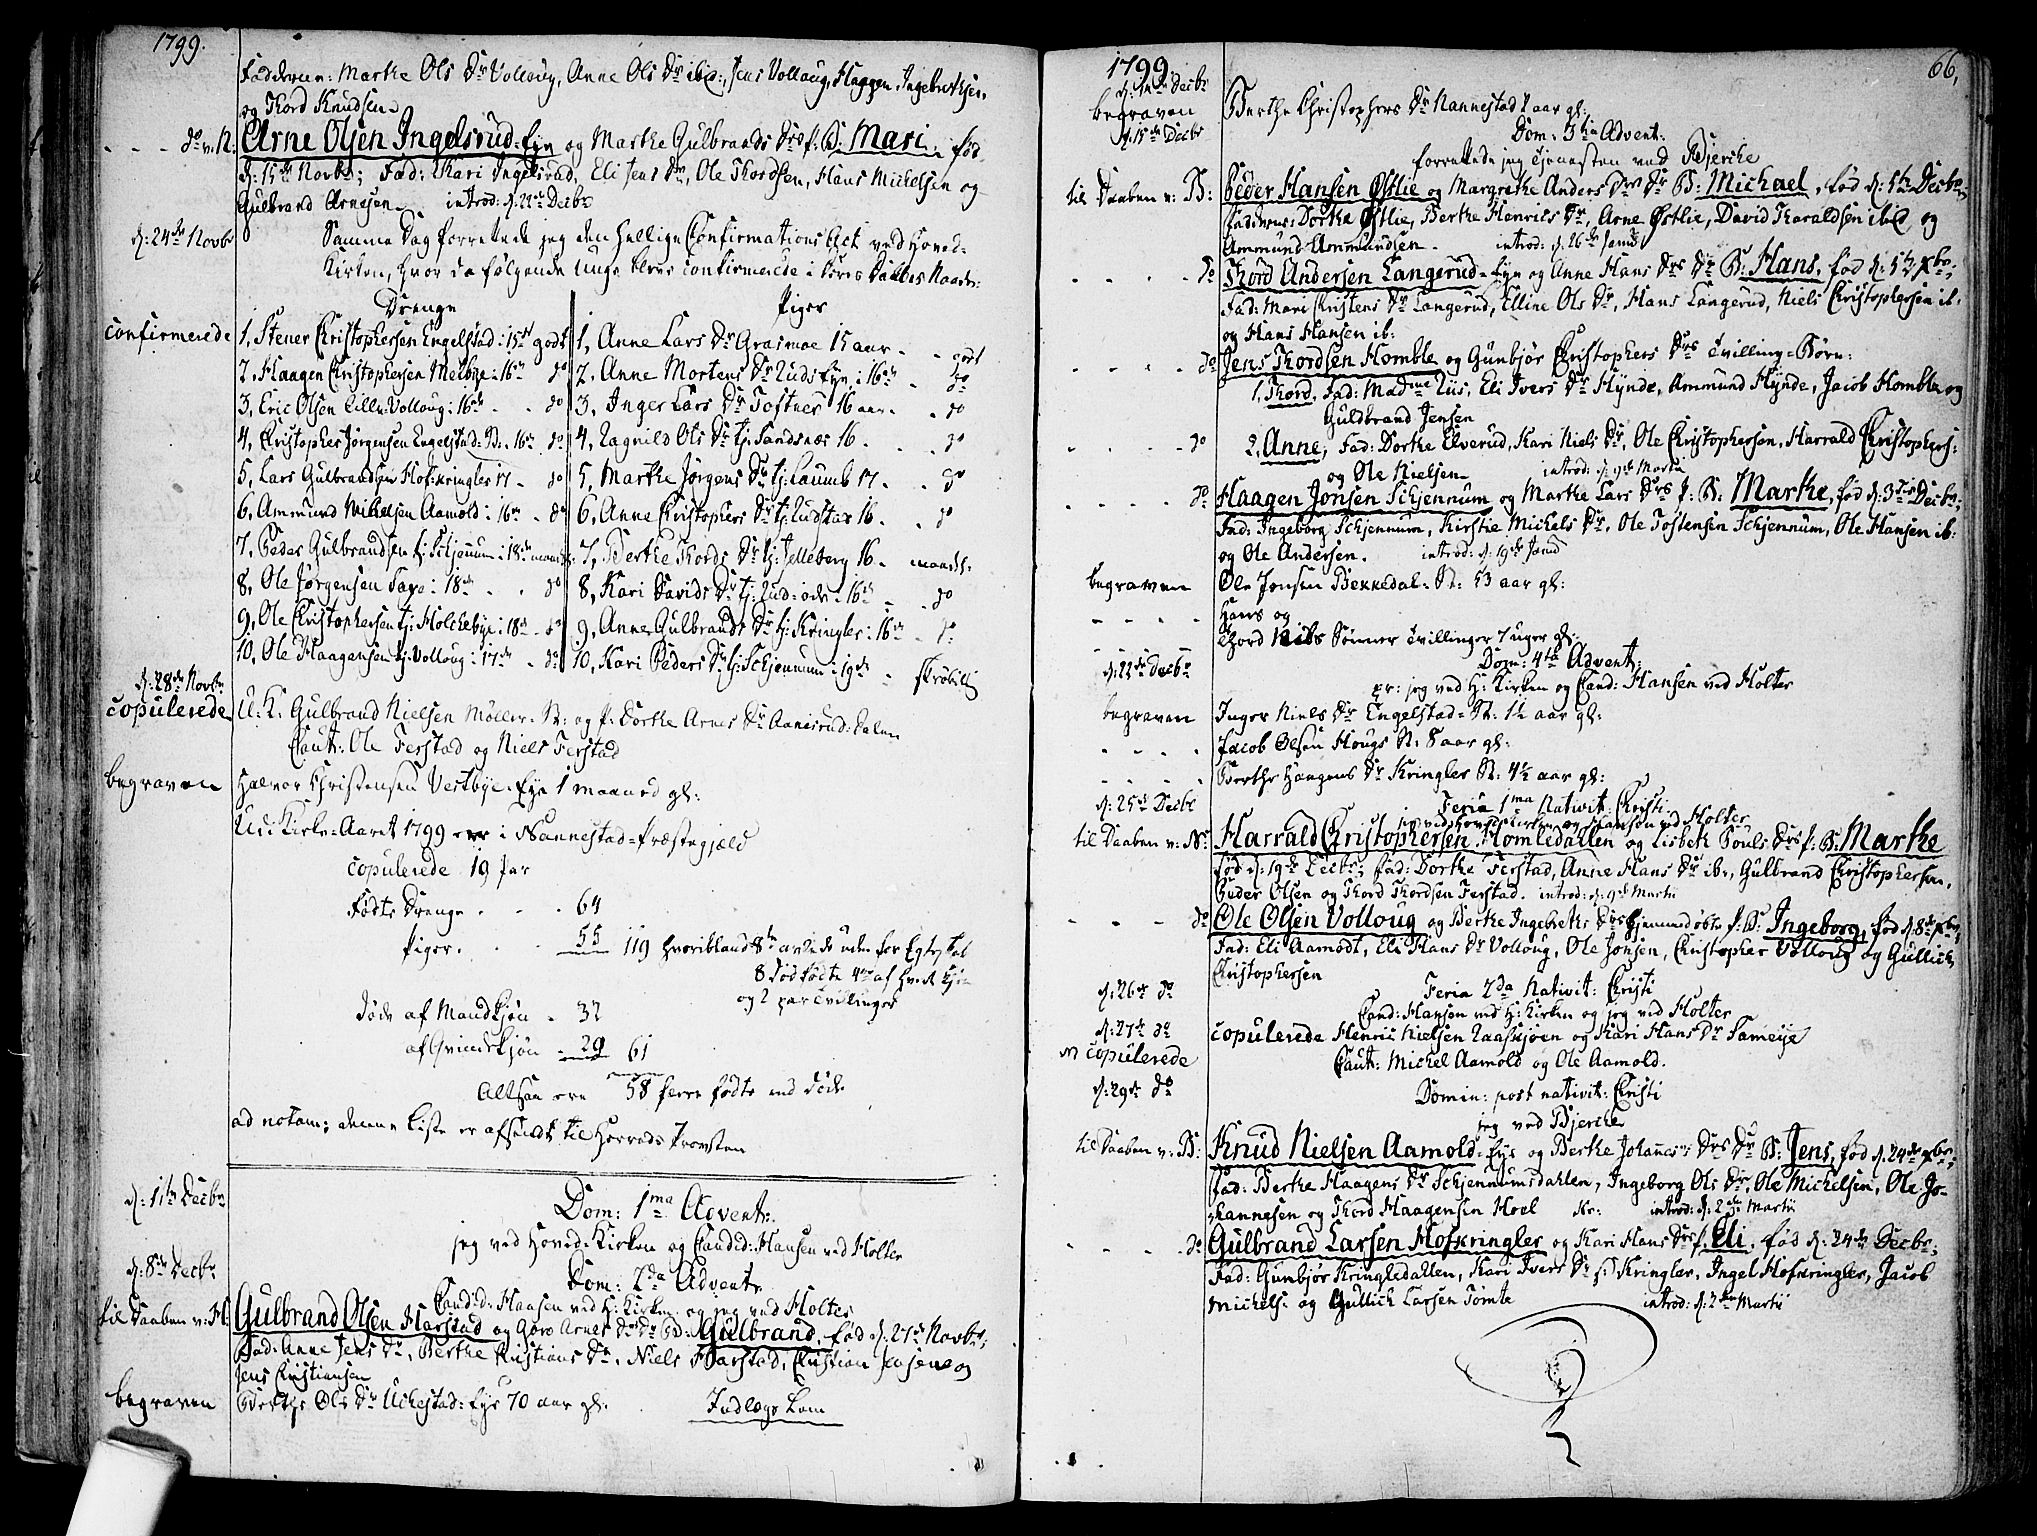 1799.
Fadderne: Marthe Ols Dr Volloug, Anne Ols Dr ibid:, Jens Volloug, Haagen Ingebrethsen,
og Thord Knudsen.
do v: N: Arne Olsen Ingelsrud-Eye og Marthe Gulbrands Drs f: B: Mari, fød
d: 15de Novbr; Fad: Kari Ingelsrud, Eli Jens Dr, Ole Thordsen, Hans Michelsen og
Gulbrand Arnesen. introd: d: 22de Decbr
d: 24de Novbr Samme Dag forrettede jeg den hellige Confirmations Act ved Hoved-
Kirken, hvor da følgende unge bleve confirmerede i deres Daabes Naade:
Drenge Piger
confirmerede 1, Stener Christophersen Engelstad: 15 godt 1, Anne Lars Dr Grasmoe 15 aar - godt
2, Haagen Christophersen Melbye: 16 do 2, Anne Mortens Dr Rudseye: 16 - do
3, Eric Olsen Lille-Volloug: 16 - do 3, Inger Lars Dr Tostnes 16 aar - do
4, Christopher Jørgensen Engelstad: 16 do 4, Ragnild Ols Dr tj: Sandsnæs 16 - do
5, Lars Gulbrandsen Hofkringler 17 - do 5, Marthe Jørgens Dr tj: Laumb 17 - do
6, Ammund Michelsen Aamold: 16 - do 6, Anne Christophers Dr tj: Rudstad 16 - do
7, Peder Gulbrandsen tj: Schjennum: 18 maadel: 7, Berthe Thords Dr tj: Jelleberg 16 - maadel:
8, Ole Jørgensen: 18 - do 8, Kari Davids Dr tj: Rud-øde: 16 - do
9, Ole Christophersen tj: Holckebye: 18 - do 9, Anne Gulbrands Dr tj: Kringler: 16 - do
10, Ole Haagensen tj: Volloug: 17 - do 10, Kari Peders Dr tj: Schjennum: 19 - skrøbelig
d: 28de Novbr
copulerede U: K: Gulbrand Nielsen Møller og P: Dorthe Arnes Dr Aamesrud-Dalen
Caut: Ole Ferstad og Niels Ferstad
begraven Halvor Christensen Vestbye-Eye 1 maaned gl:
Udi Kirke-Aaret 1799 ere i Nannestad-Præstegjeld
copulerede 19 Par
Fødte Drenge . . . 64
Piger . . . 55 119 hvoriblandt 8te avlede uden for Egteskab
8 Dødfødte 4re af hvert Kjøn
og 2 par tvillinger
Døde af Mandkjøn - 32
af Qvindekjøn - 29 61
Altsaa ere 58 flere fødte end døde
ad notam; denne Liste er afsendt til Herreds Provsten
d: 1ste Decbr Dom: 1ma Advent:
jeg ved Hoved-Kirken og Candid: Hansen ved Holter
d: 8de Decbr Dom: 2da Advent:
Candid: Hansen ved H: Kirken og jeg ved Holter
til Daaben v: H: Gulbrand Olsen Harstad og Goro Arnes Drs Dr: B: Gulbrand, fød d: 27de Novbr;
Fad: Anne Jens Dr, Berthe Christians Dr, Niels Harstad, Christian Jensen og
Jens Christiansen
begraven Berthe Ols Dr Uckestad-Eye 70 aar gl: Indlægs Lem
1799 66,
d: Decbr
begraven Berthe Christophers Dr Nannestad 2 aar gl:
d: 15de Decbr Dom: 3tia Advent:
forrettede jeg Tjenesten ved Bjercke
til Daaben v: B: Peder Hansen Østlie og Margrethe Anders Drs B: Michael, fød d: 5te Decbr;
Fadderne: Dorthe Østlie, Berthe Henrics Dr, Arne Østlie, David Haraldsen ibid og
Ammund Ammundsen. introd: d: 26de Janr
do Thord Andersen Langerud-Eye og Anne Hans Drs B: Hans, fød d: 5te Xbr;
Fad: Mari Christens Dr Langerud, Elline Ols Dr, Hans Langerud, Niels Christophersen ib:
og Hans Hansen ib:
do Jens Thordsen Homble og Gunbjør Christophers Drs Tvilling-Børn:
1, Thord, Fad: Madme Riis, Eli Ivers Dr Hynde, Ammund Hynde, Jacob Homble og
Guldbrand Jensen
do 2, Anne, Fad: Dorthe Elverud, Kari Niels Dr, Ole Christophersen, Harrald Christophers:
og Ole Nielsen. introd: d: 9de Martii
do Haagen Jonsen Schjennum og Marthe Lars Drs P: B: Marthe, fød d: 3die Decbr;
Fad: Ingeborg Schjennum, Kirstie Michels Dr, Ole Tostensen Schjennum, Ole Hansen ib:
og Ole Andersen. introd: d: 19de Janr
begraven Ole Jonsen Bekkedal 53 aar gl:
Hans og
Thord Niels Sønner Tvillinger 7 uger gl:
d: 22de Decbr Dom: 4ta Advent:
pr: jeg ved H: Kirken og Cand: Hansen ved Holter
begraven Inger Niels Dr Engelstad 1½ aar gl:
Jacob Olsen Hougs 8 aar gl:
Berthe Haagens Dr Kringler 4½ aar gl:
d: 25de Decbr Feria 1ma Nativit: Christi
jeg ved Hoved-Kirken og Hansen ved Holter
til Daaben v: N: Harrald Christophersen Hombledallen og Lisbeth Pouls Drs P: B: Marthe
fød d: 19de Decbr; Fad: Dorthe Ferstad, Anne Hans Dr ib:, Gulbrand Christophersen,
Peder Olsen og Thord Thordsen Ferstad. introd: d: 9de Martii
do Ole Olsen Volloug og Berthe Ingebreths Drs hjemmedøbte P: B: Ingeborg, fød d: 8de Xbr,
Fad: Eli Aamodt, Eli Hans Dr Volloug, Ole Jonsen, Christopher Volloug og Gullich
Christophersen
d: 26de do Feria 2da Nativit: Christi
Cand: Hansen ved H: Kirken og jeg ved Holter
d: 27de do copulerede Henric Nielsen Raasjøen og Kari Hans Dr Tameye
copulerede Caut: Michel Aamold og Ole Aamold.
d: 29de do Domin: post nativit: Christi
jeg ved Bjercke
til Daaben v: B: Knud Nielsen Aamold-Eye og Berthe Johannes Drs B: Jens, fød d: 24de Xbr;
Fad: Berthe Haagens Dr Schjennumsdahlen, Ingeborg Ols Dr, Ole Michelsen, Ole Jo-
hannesen og Thord Haagensen Hoel introd: d: 2den Martii
do Gulbrand Larsen Hofkringler og Kari Hans Drs P: Eli, fød d: 24de Decbr;
Fad: Gunbjør Kringledallen, Kari Ivers Dr Kringler, Ingel Hofkringler, Jacob
Michels: og Gullich Larsen Tomte introd: d: 2den Martii